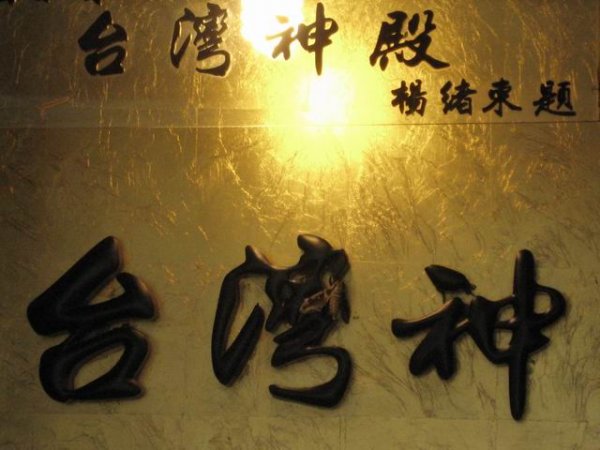 台灣神殿
楊緒東題
台灣神